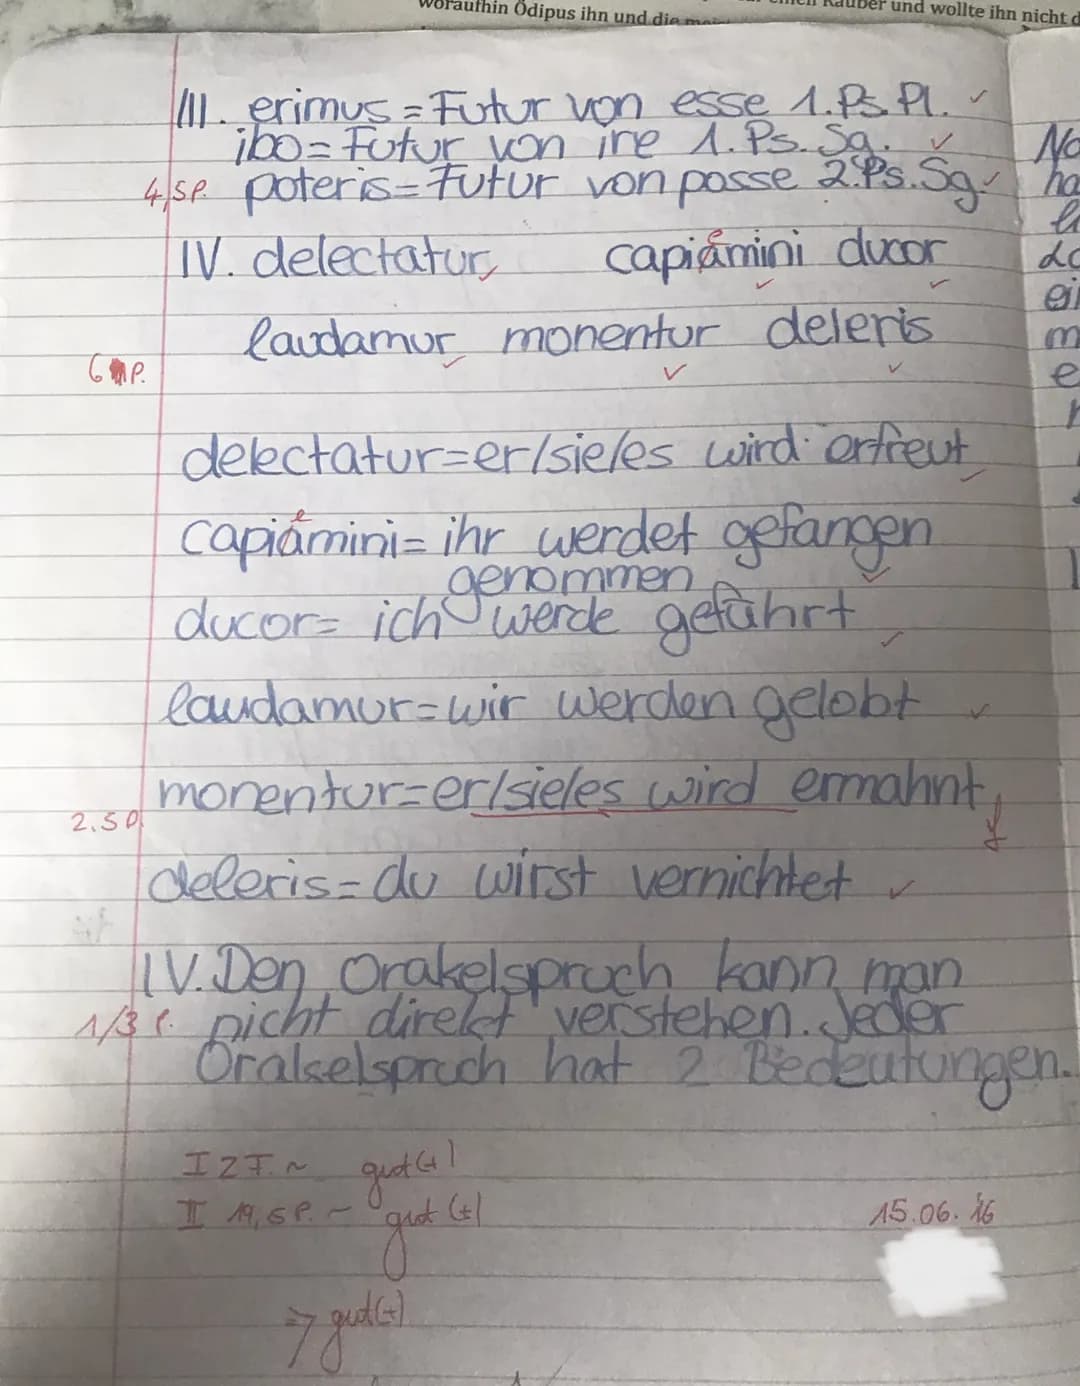 woraufhin Ödipus ihn und die
Räuber und wollte ihn nicht
III. erimus = Futur von esse 1. Ps. Pl. ✓
ibo = Futur von ire 1. Ps. Sg. ✓
4,5P. poteris = Futur von posse 2. Ps. Sg. ✓
IV. delectatur, capiamini ducor
e
laudamur monentur deleris
6 P.
delectatur = er/sie/es wird erfreut
e
capiamini = ihr werdet gefangen
genommen
ducor = ich werde geführt
laudamur = wir werden gelobt
monentur = er/sie/es wird ermahnt f
2.5P.
deleris = du wirst vernichtet
IV. Den Orakelspruch kann man
1/3 P. nicht direkt verstehen. Jeder
Orakelspruch hat 2 Bedeutungen.
I 2 F. ~ gut (+)
II 19,5 P. ~ gut (+)
15.06.16
=> gut (+)